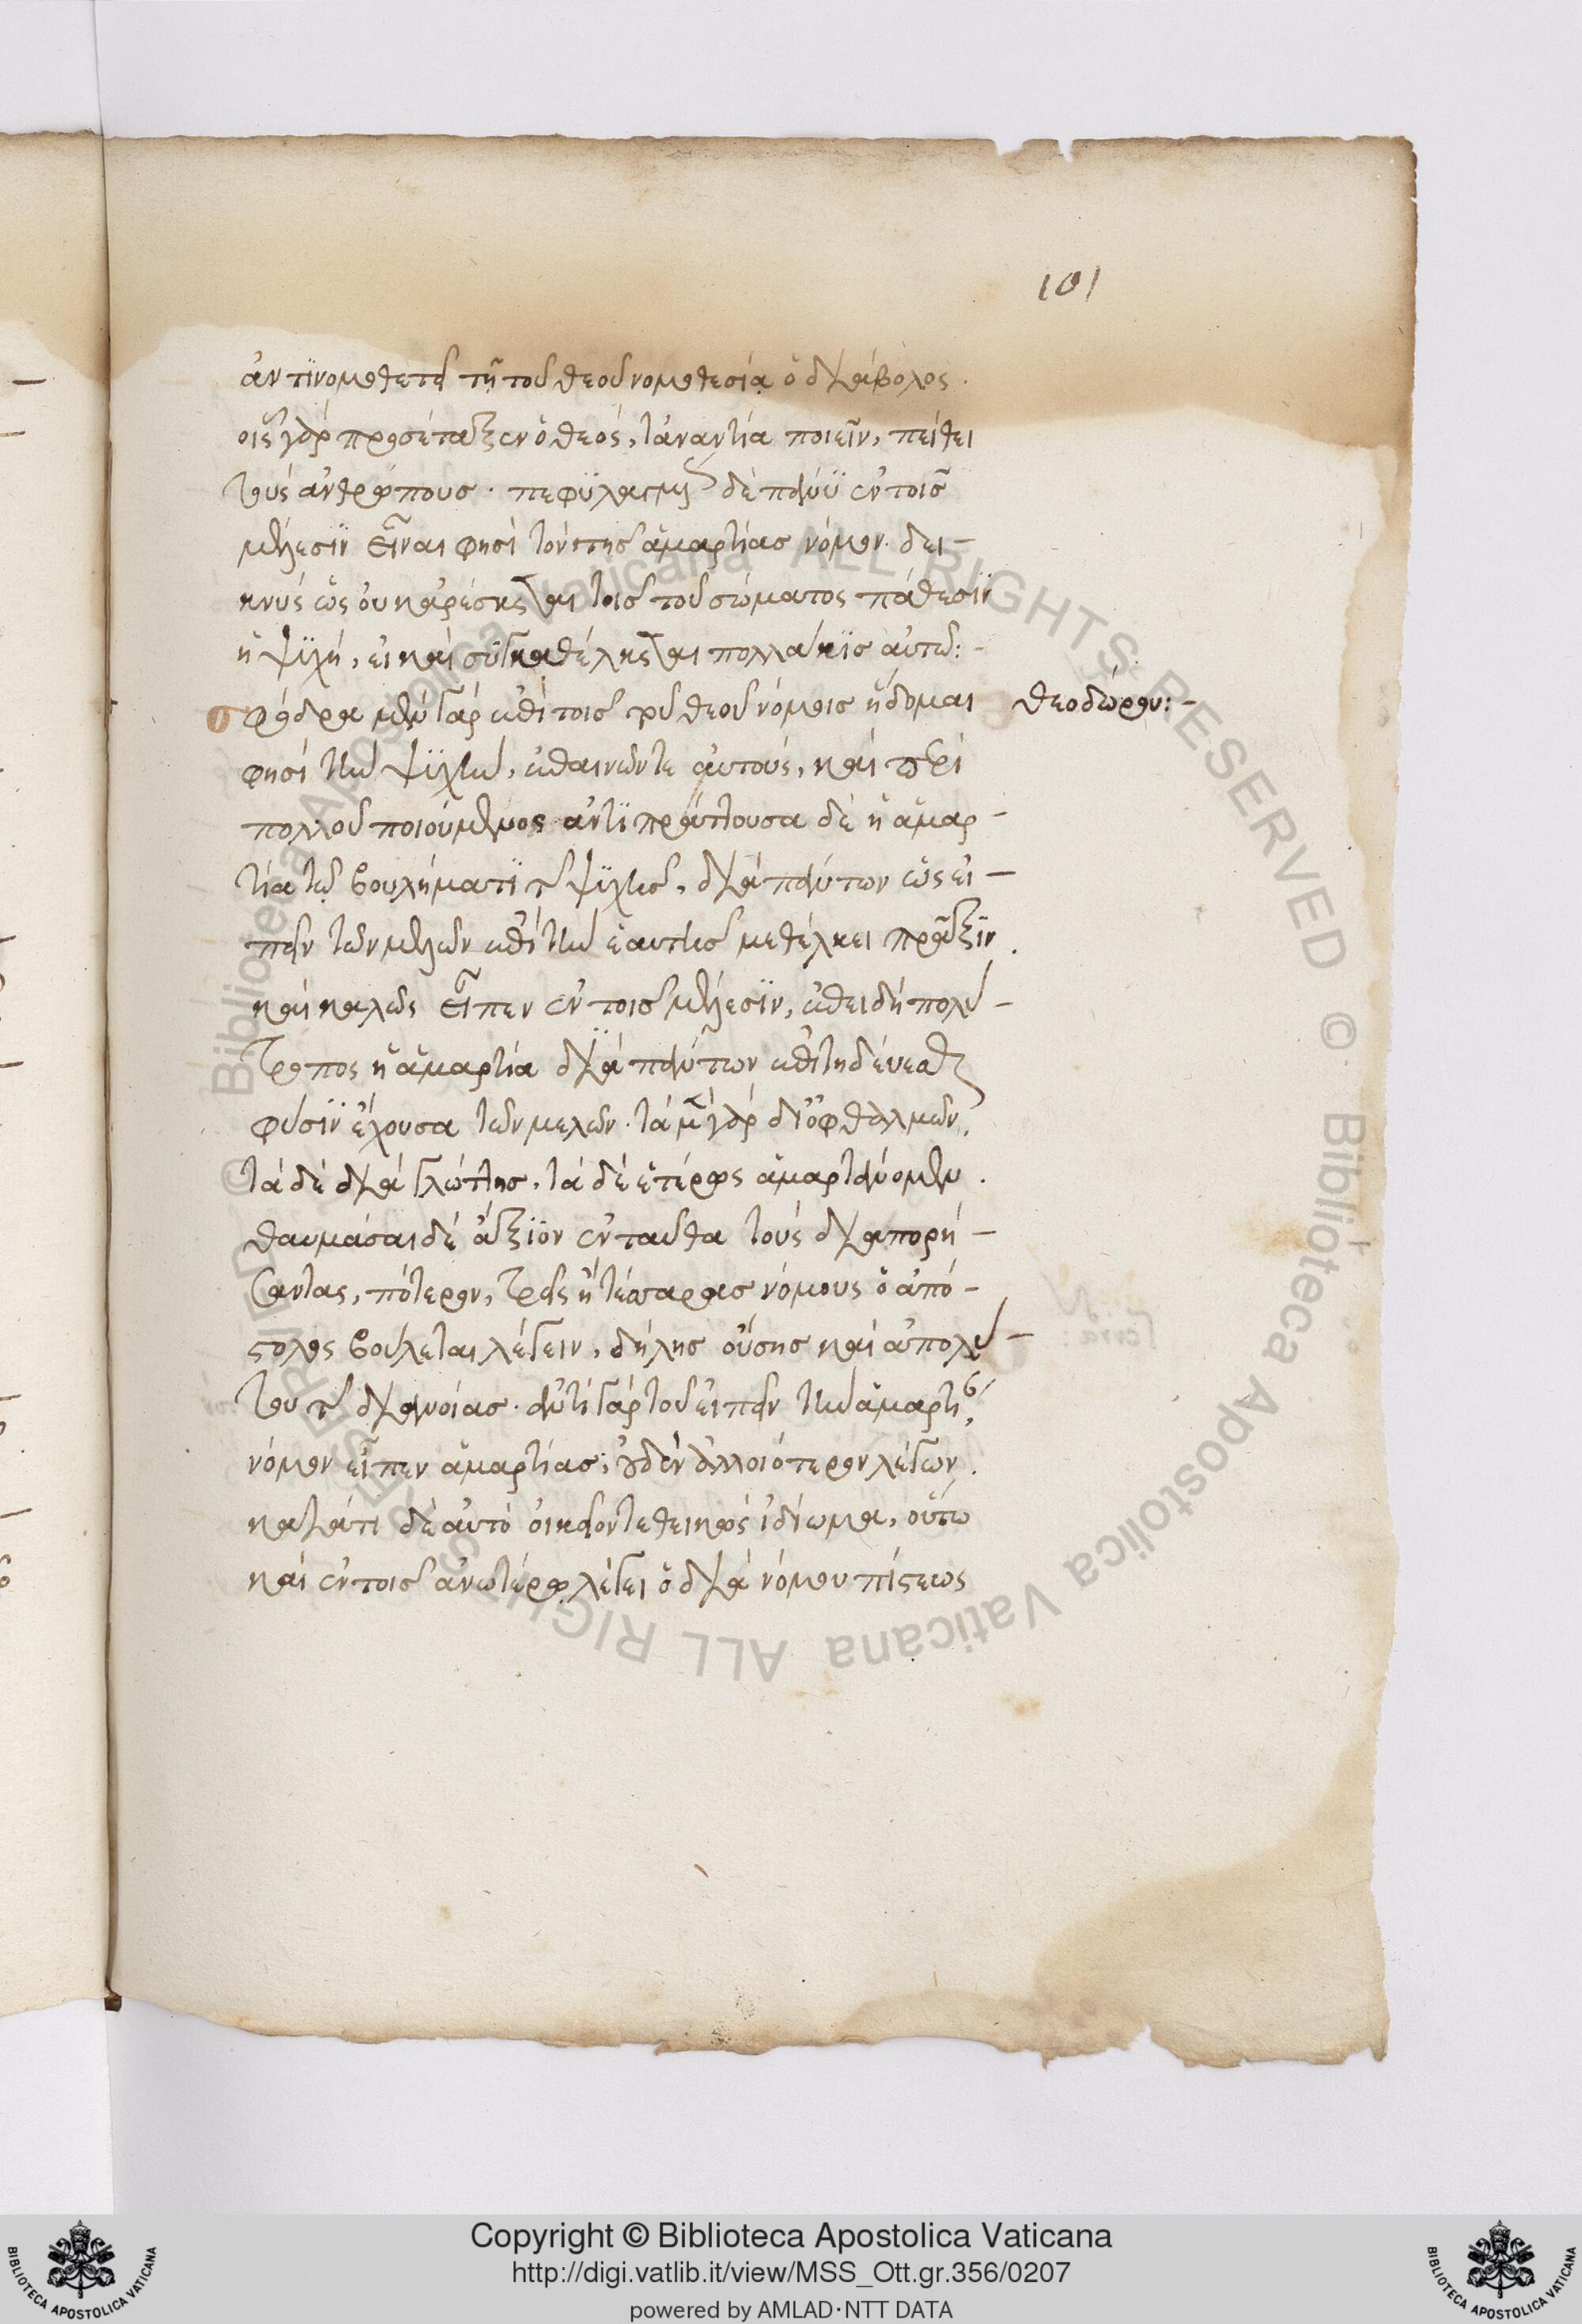 101
ἀντινομοθετεῖ τῇ τοῦ θεοῦ νομοθεσίᾳ ὁ διάβολος.
οἷς γὰρ προσέταξεν ὁ θεός, τἀναντία ποιεῖν, πείθει
τοὺς ἀνθρώπους. δὲ πάλιν ἐν τοῖς
μέλεσιν εἶναι φησὶ τὸν τῆς ἁμαρτίας νόμον. δει-
κνὺς ὡς οὐκ ἀρέσκεται τοῖς τοῦ σώματος πάθεσιν
ἡ ψυχή, εἰ καὶ συγκαθέλκεται πολλάκις αὐτῷ:-
σφόδρα μὲν γὰρ ἐπὶ τοῖς τοῦ θεοῦ νόμοις ἥδομαι
θεοδώρου:-
φησὶ τὴν ψυχὴν, ἐπαινῶν τε αὐτούς, καὶ περὶ
πολλοῦ ποιούμενος ἀντιπράττουσα δὲ ἡ ἁμαρ-
τία τῷ βουλήματι τῆς ψυχῆς, διὰ πάντων ὡς εἰ-
πεῖν τῶν μελῶν ἐπὶ τὴν ἑαυτῆς μεθέλκει πρᾶξιν.
καὶ καλῶς εἶπεν ἐν τοῖς μέλεσιν, ἐπειδὴ πολύ-
τροπος ἡ ἁμαρτία διὰ πάντων ἐπιτηδεύεσθαι
φύσιν ἔχουσα τῶν μελῶν. τὰ μὲν γὰρ δι' ὀφθαλμῶν,
τὰ δὲ διὰ γλώττης, τὰ δὲ ἑτέρως ἁμαρτάνομεν.
θαυμάσαι δὲ ἄξιον ἐνταῦθα τοὺς διαπορή-
σαντας, πότερον, τρεῖς ἢ τέσσαρας νόμους ὁ ἀπό-
στολος βούλεται λέγειν, δήλης οὔσης καὶ ἀπολύ-
του τῆς διανοίας. ἀντὶ γὰρ τοῦ εἰπεῖν τὴν ἁμαρτίαν,
νόμον εἶπεν ἁμαρτίας, οὐδὲν ἀλλοιότερον λέγων.
καὶ ἔστι δὲ αὐτὸ οἰκεῖόν τε θεικῶς ἰδίωμα, οὕτω
καὶ ἐν τοῖς ἀνωτέρω λέγει ὁ διὰ νόμου πίστεως
© Biblioteca Apostolica Vaticana ALL RIGHTS RESERVED
© Biblioteca Apostolica Vaticana ALL RIGHTS RESERVED
Copyright © Biblioteca Apostolica Vaticana
http://digi.vatlib.it/view/MSS_Ott.gr.356/0207
powered by AMLAD·NTT DATA
BIBLIOTECA APOSTOLICA VATICANA
BIBLIOTECA APOSTOLICA VATICANA